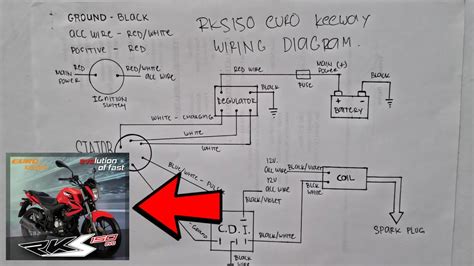 GROUND - BLACK
ACC WIRE - RED/WHITE
POSITIVE - RED
RKS150 EURO KEEWAY
WIRING DIAGRAM.
MAIN POWER
RED
RED/WHITE
ACC WIRE
IGNITION SWITCH
RED WIRE
FUSE
MAIN (+) POWER
BLACK
BATTERY
REGULATOR
BLACK
WHITE - CHARGING
WHITE
WHITE
STATOR
BLUE/WHITE - PULS
12V. ACC WIRE
12V ACC WIRE
BLACK/VIOLET
BLACK/VIOLET
BLACK/WHITE
BLCK WHITE
COIL
SPARK PLUG
C.D.I.
- GROUND
BLACK
evolution
of fast
RKS
150